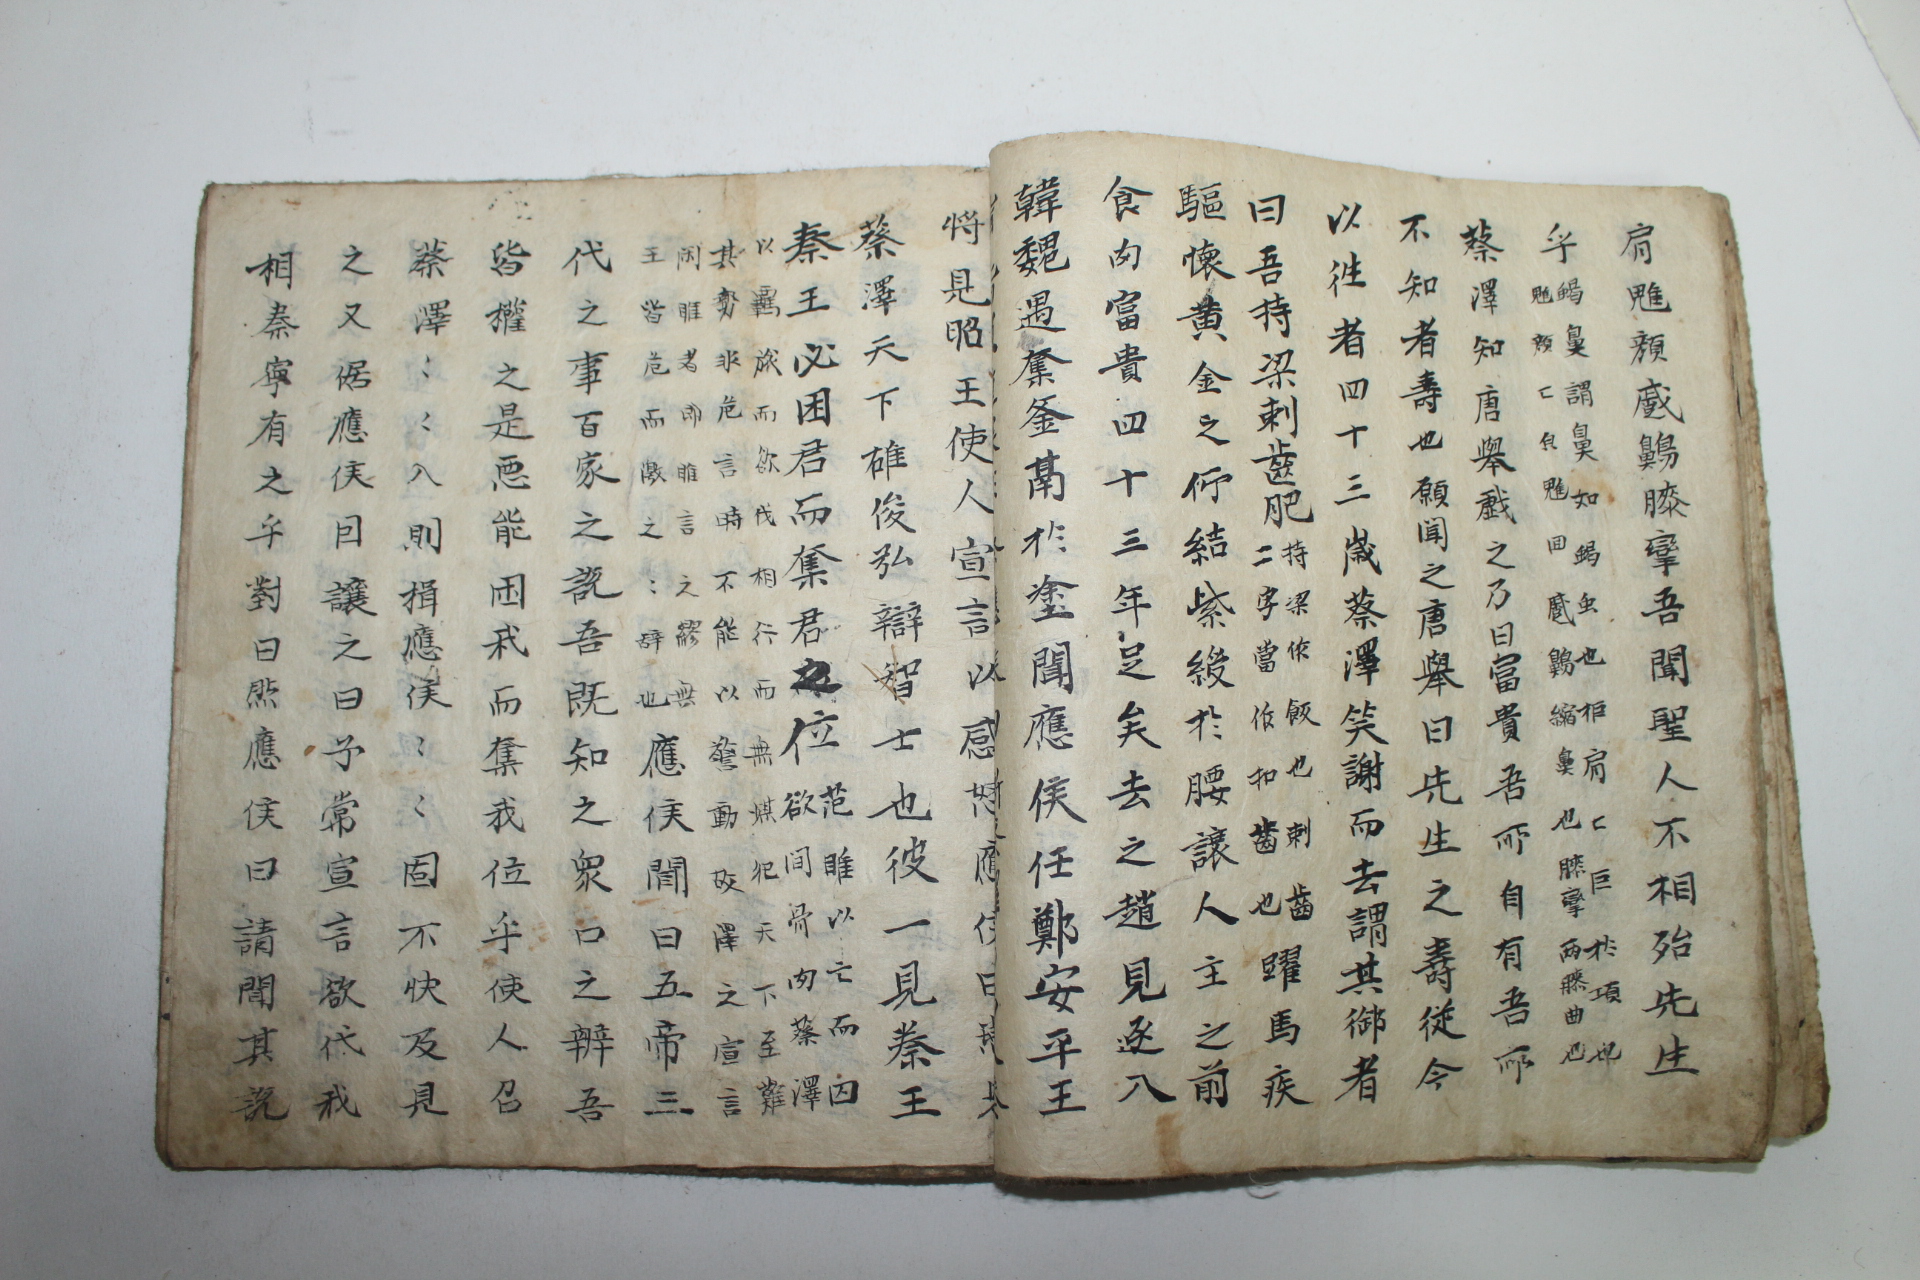 肩魋顏蹙鼻曷膝攣吾聞聖人不相殆先生
乎
蝎鼻謂鼻如蝎虫也柜肩〻巨於項也
魋顏〻皃魋回蹙齃縮鼻也膝攣兩膝曲也
蔡澤知唐舉戱之乃曰富貴吾所自有吾所
不知者壽也願聞之唐舉曰先生之壽従今
以徃者四十三歲蔡澤笑謝而去謂其御者
曰吾持梁刺齒肥
持梁作飯也刺齒
二字當作扣齒也
躍馬疾
驅懷黃金之印結紫綬於腰讓人主之前
食肉富貴四十三年足矣去之趙見逐入
韓魏遇奪釜鬲於塗聞應侯任鄭安平王
將見昭王使人宣言以感怒應侯曰
蔡澤天下雄俊弘辯智士也彼一見秦王
秦王必困君而奪君之位
范雎以亡而囚
欲間骨肉蔡澤
以羈旅而欲伐相行而無媒犯天下至難
其勢非危言時不能以警動故澤之宣言
閑雎者卽雎言之繆無
王皆危而激之〻辞也
應侯聞曰五帝三
代之事百家之說吾既知之衆口之辨吾
皆摧之是惡能困我而奪我位乎使人召
蔡澤〻〻入則揖應侯〻〻固不快及見
之又倨應侯因讓之曰予常宣言欲代我
相秦寧有之乎對曰然應侯曰請聞其說